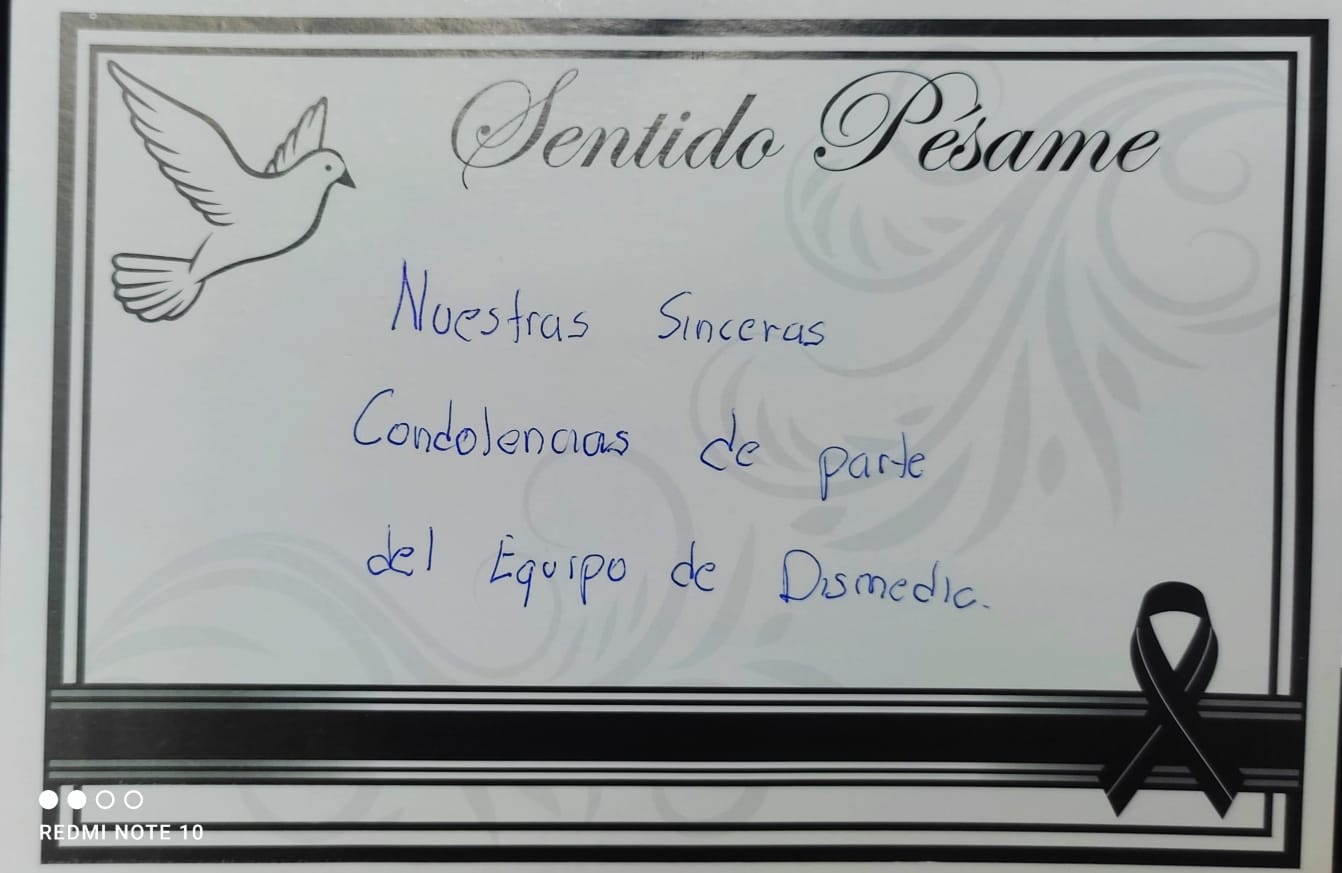 Sentido Pésame
Nuestras Sinceras
Condolencias de parte
del Equipo de Dismedic.
REDMI NOTE 10